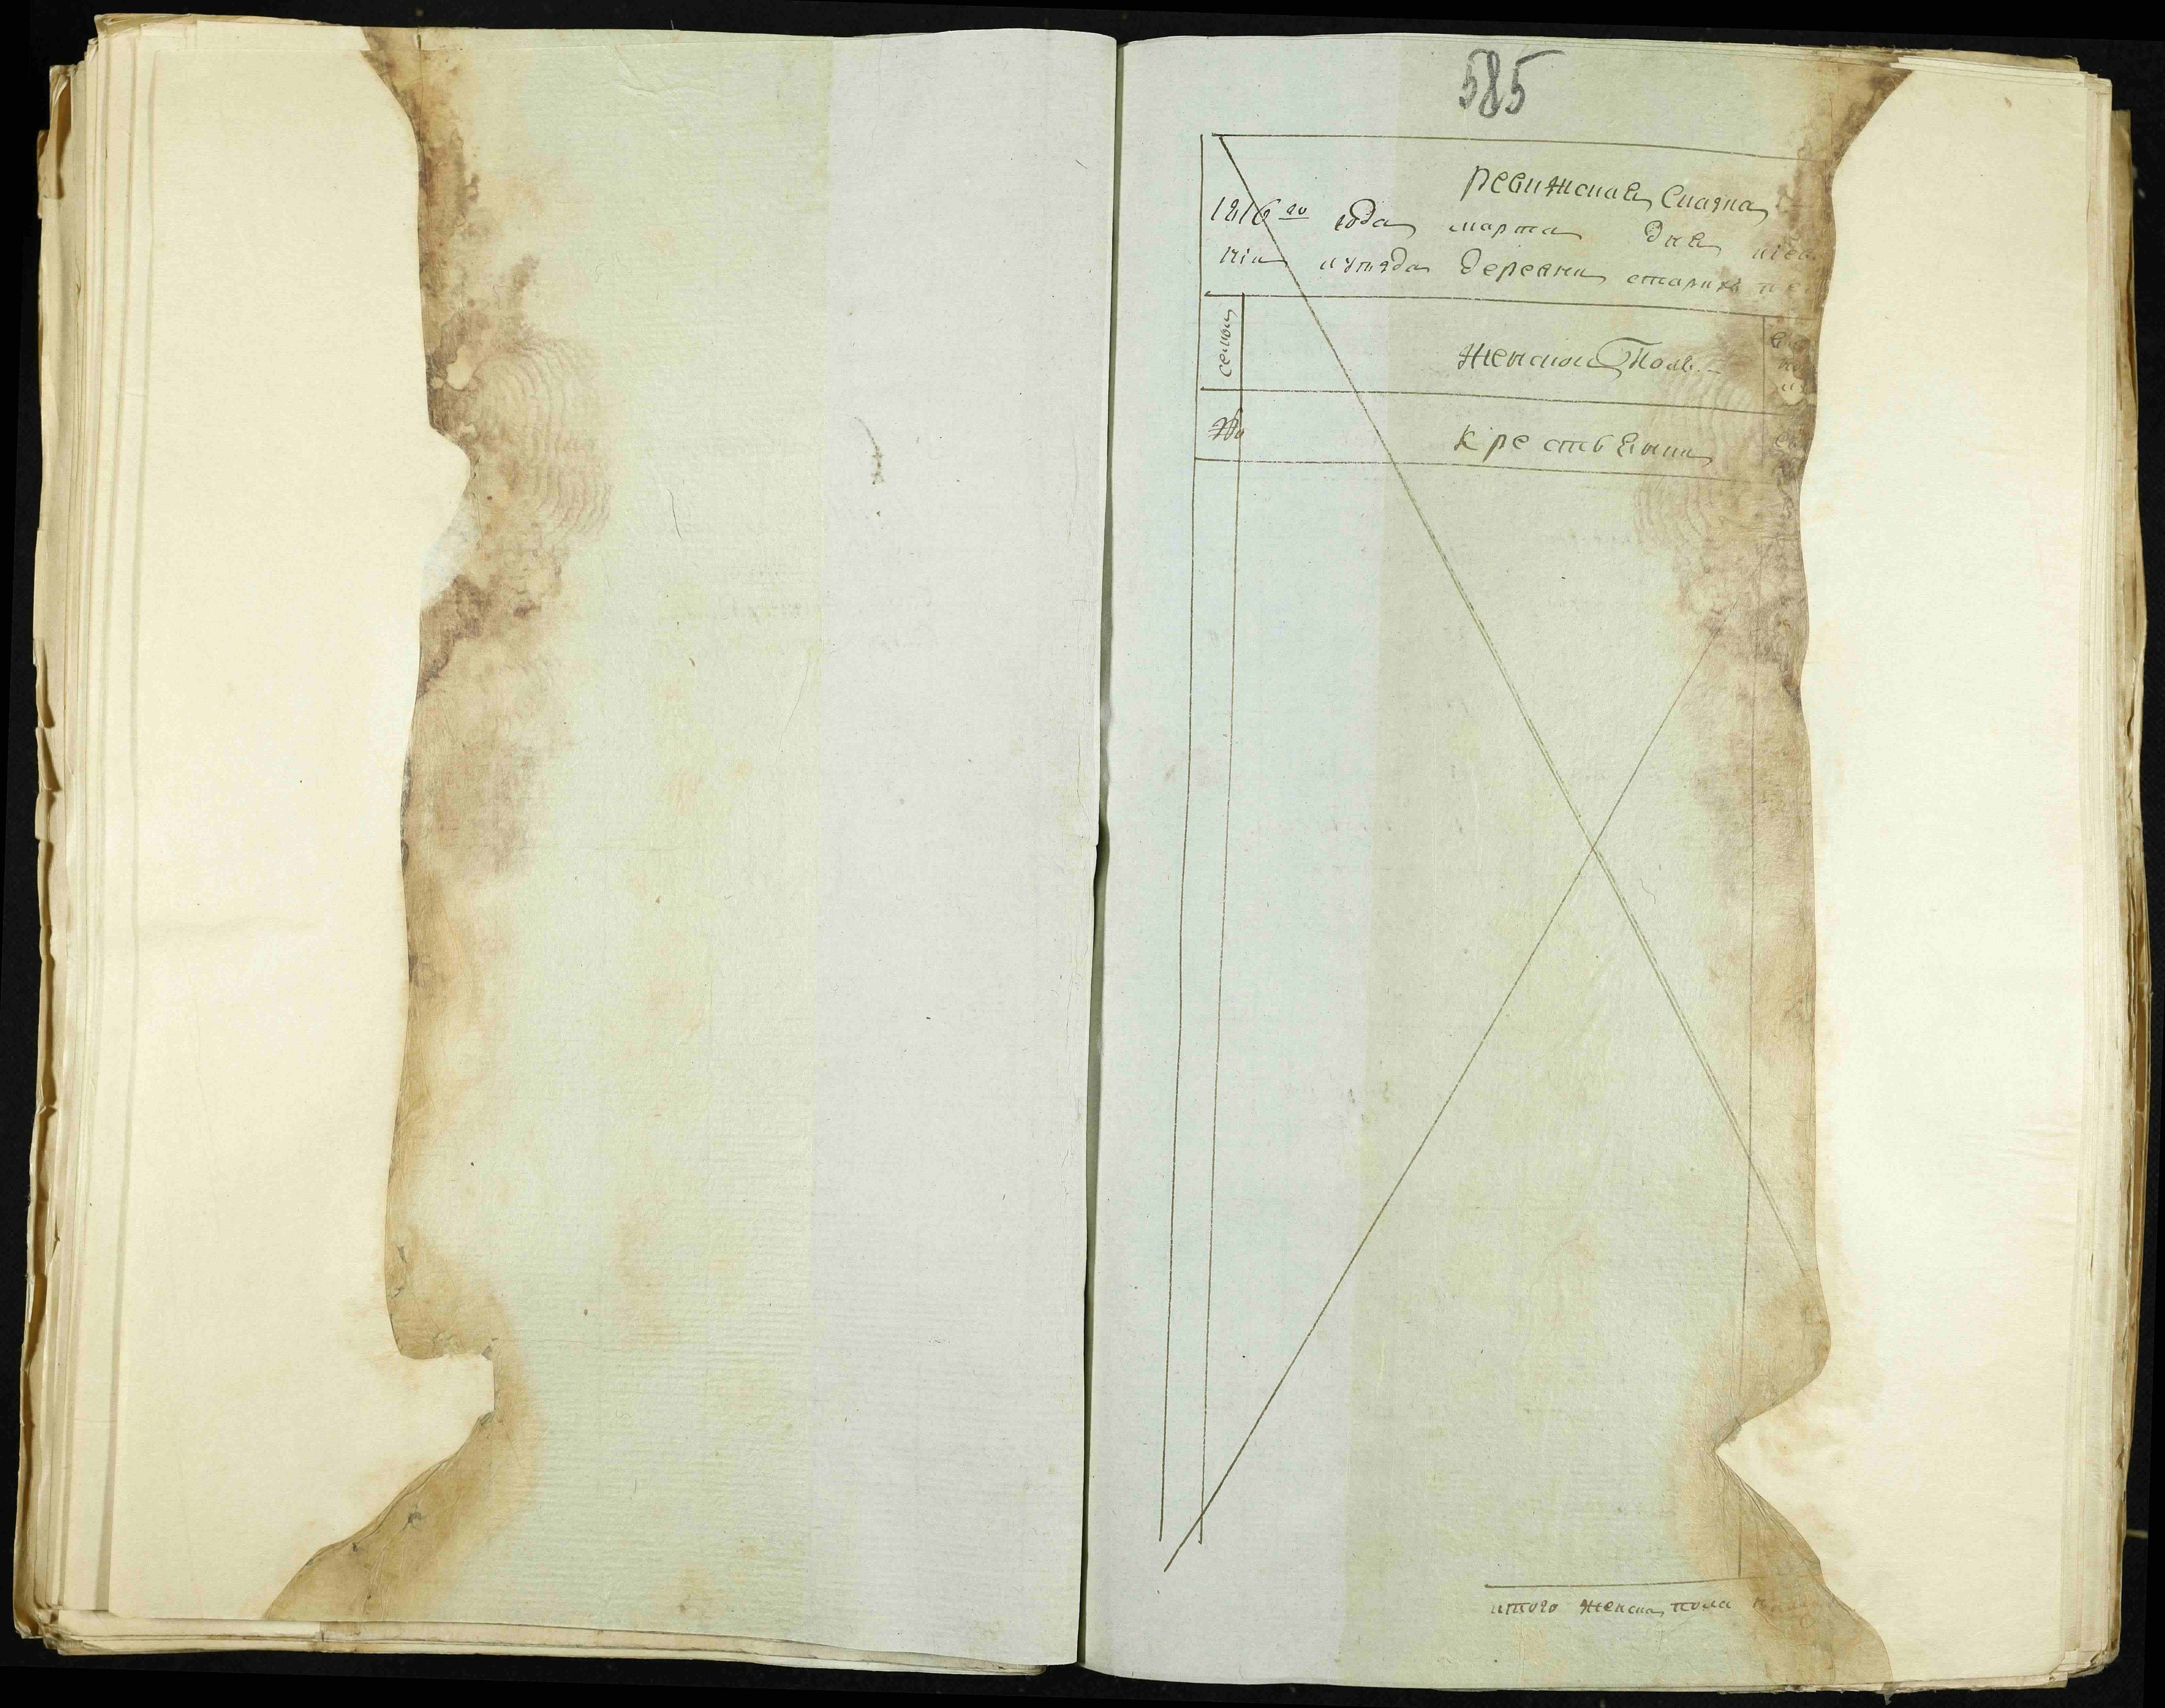 585
Ревижская Сказка
1816го года марта дня киев
нiи уѣзда деревни старих
семьи
женскои Полъ
№
крестьяни
итого женска пола